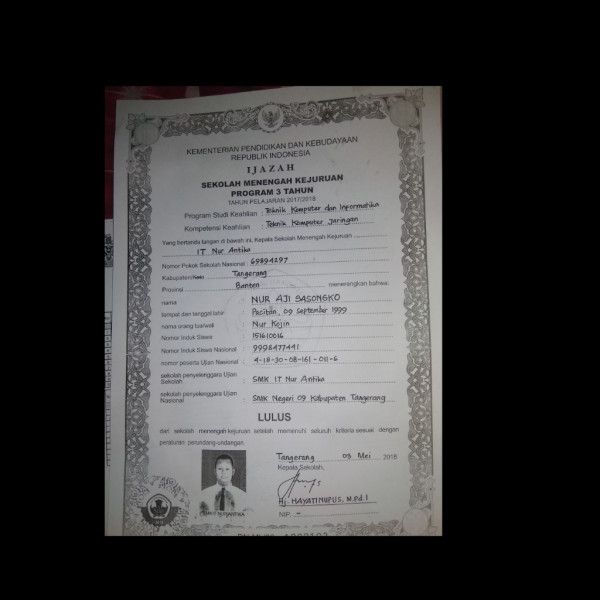 KEMENTERIAN PENDIDIKAN DAN KEBUDAYAAN
REPUBLIK INDONESIA
IJAZAH
SEKOLAH MENENGAH KEJURUAN
PROGRAM 3 TAHUN
TAHUN PELAJARAN 2017/2018
Program Studi Keahlian : Teknik Komputer dan Informatika
Kompetensi Keahlian : Teknik Komputer Jaringan
Yang bertanda tangan di bawah ini, Kepala Sekolah Menengah Kejuruan
IT Nur Antika
Nomor Pokok Sekolah Nasional : 69894297
Kabupaten/Kota Tangerang
Provinsi Banten menerangkan bahwa:
nama : NUR AJI SASONGKO
tempat dan tanggal lahir : Pacitan, 09 September 1999
nama orang tua/wali : Nur Kojin
Nomor Induk Siswa : 151610016
Nomor Induk Siswa Nasional : 9998477441
nomor peserta Ujian Nasional : 4-18-30-08-161-011-6
sekolah penyelenggara Ujian
Sekolah : SMK IT Nur Antika
sekolah penyelenggara Ujian
Nasional : SMK Negeri 09 Kabupaten Tangerang
LULUS
dari sekolah menengah kejuruan setelah memenuhi seluruh kriteria sesuai dengan
peraturan perundang-undangan.
Tangerang 03 Mei 2018
Kepala Sekolah,
Hj. HAYATINUPUS, M.Pd.I
NIP. -